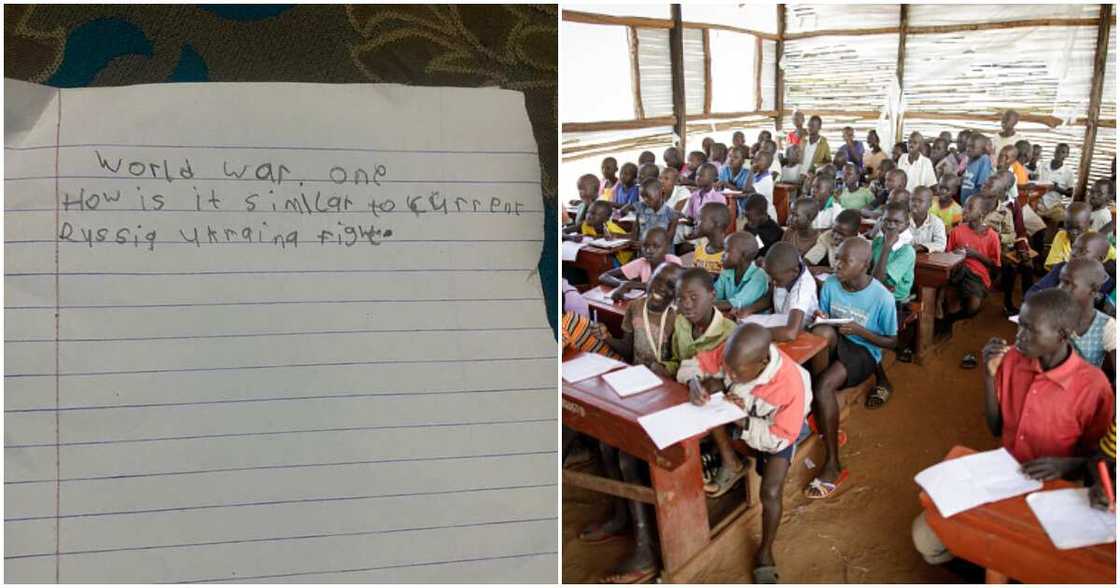 World war. one
How is it similar to current
Russia ukraina fight.